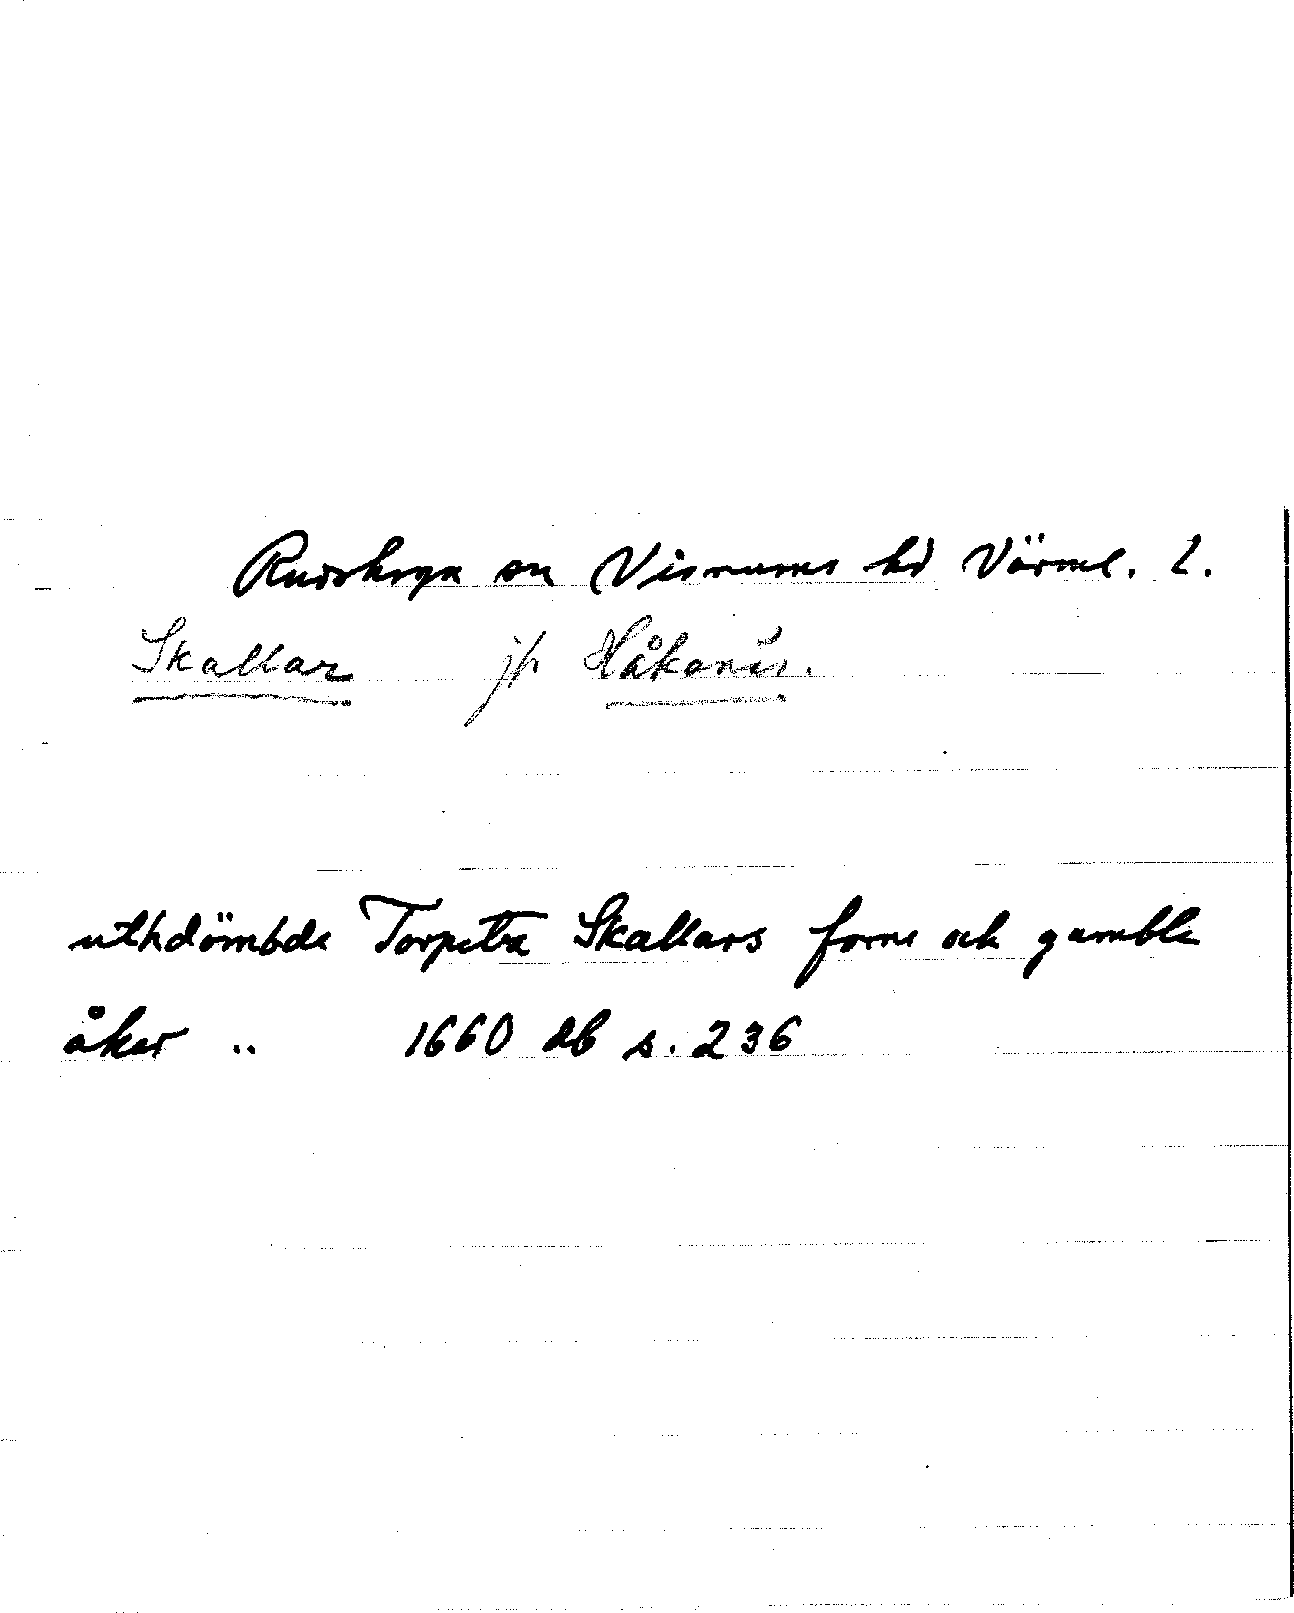 Rudskoga sn Visnums hd Värml. l.
Skallar jfr Håkanäs.
uthdömbde Torpetz Skallars forne och gamble
åker .. 1660 db s. 236